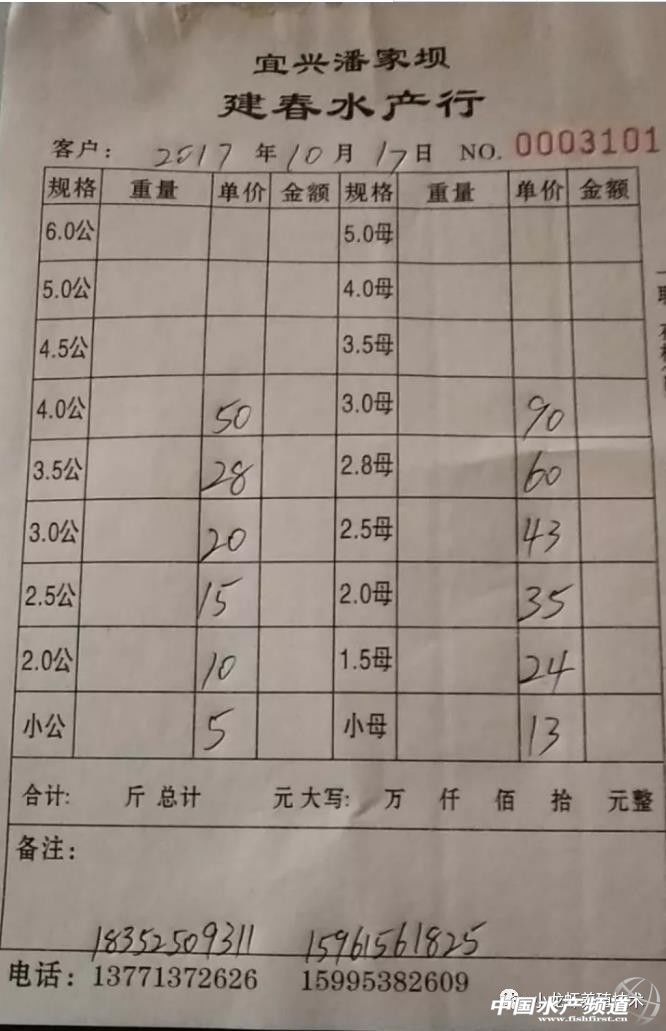 宜兴潘家坝
建春水产行
客户: 2017 年 10 月 17 日 NO. 0003101
规格 重量 单价 金额 规格 重量 单价 金额
6.0公 5.0母
5.0公 4.0母
4.5公 3.5母
4.0公 50 3.0母 90
3.5公 28 2.8母 60
3.0公 20 2.5母 43
2.5公 15 2.0母 35
2.0公 10 1.5母 24
小公 5 小母 13
合计: 斤 总计 元 大写: 万 仟 佰 拾 元整
备注:
18352509311 15961561825
电话: 13771372626 15995382609
小龙虾养殖技术
中国水产频道
www.fishfirst.cn